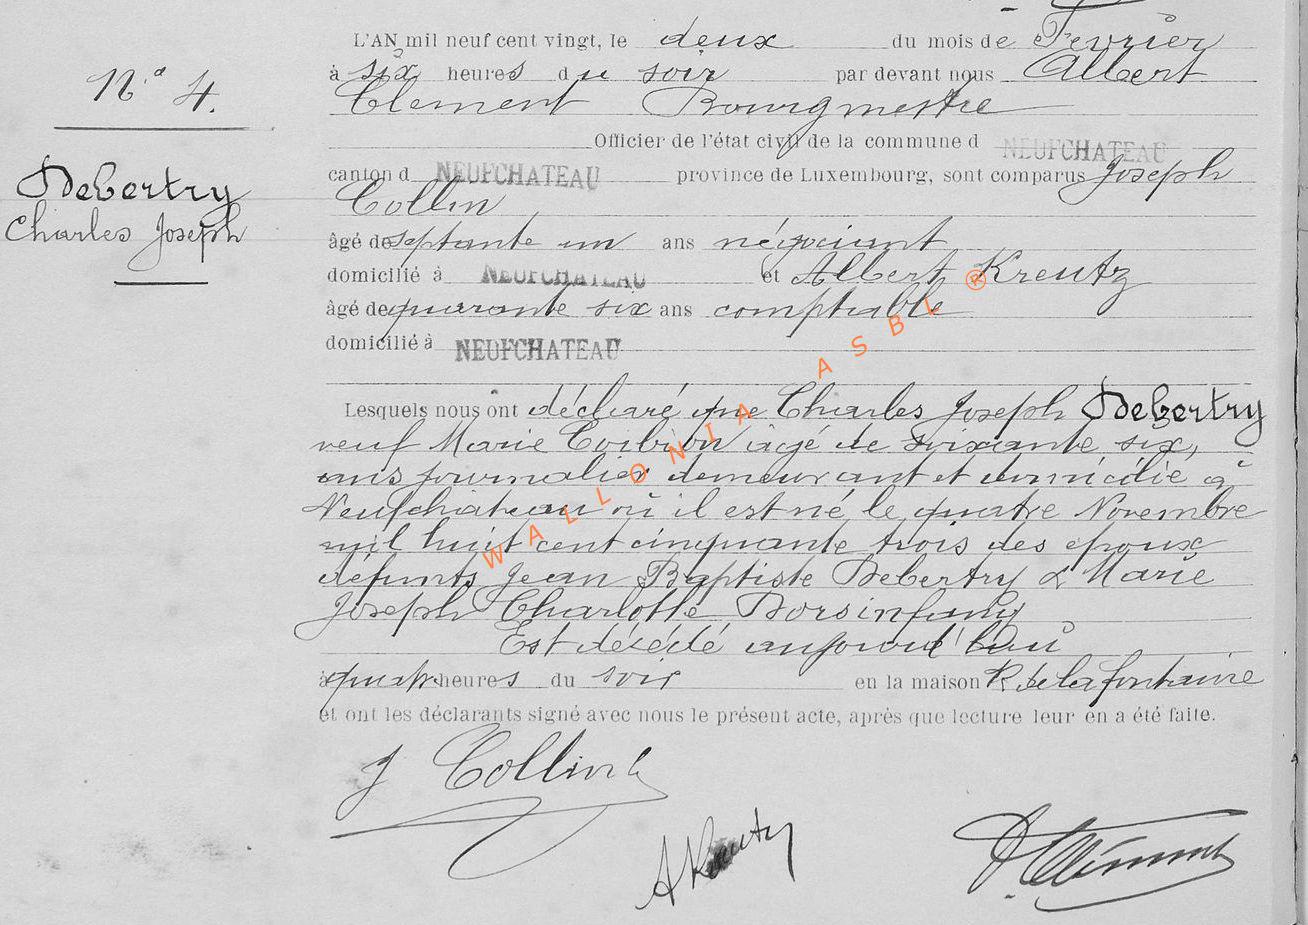 L'AN mil neuf cent vingt, le deux du mois de Fevrier
à six heures du soir par devant nous Albert
Clement Bourgmestre
Nº 4.
Officier de l'état civil de la commune d NEUFCHATEAU
canton d NEUFCHATEAU province de Luxembourg, sont comparus Joseph
Collin
Debertry
Charles Joseph
âgé de septante un ans négociant
domicilié à NEUFCHATEAU et Albert Kreutz
âgé de quarante six ans comptable
domicilié à NEUFCHATEAU
Lesquels nous ont déclaré que Charles Joseph Debertry
veuf Marie Corbion âgé de soixante six,
ans journalier demeurant et domicilié à
Neufchateau où il est né le quatre Novembre
mil huit cent cinquante trois des époux
défunts Jean Baptiste Debertry & Marie
Joseph Charlotte Borsinfang
Est décédé aujourd'hui
à quatre heures du soir en la maison R. de la fontaine
et ont les déclarants signé avec nous le présent acte, après que lecture leur en a été faite.
J Collin
AKreutz
WALLONIA ASBL ®